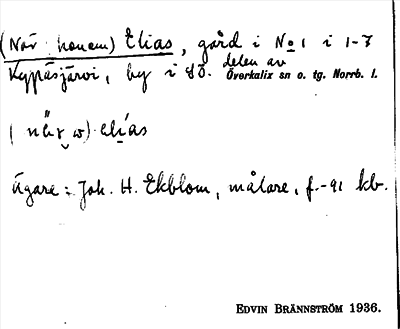 (När honom) Elias, gård i No 1 i 1-7
Kypäsjärvi, by i SÖ. delen av
Överkalix sn o. tg. Norrb. l.
elías
Ägare: Joh. H. Ekblom, målare, f.-91 kb.
EDVIN BRÄNNSTRÖM 1936.